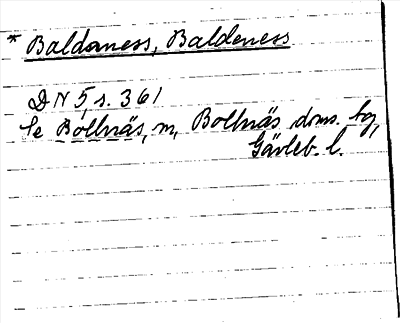 * Baldaness, Baldeness
DN 5, s. 361
Se Bollnäs, m, Bollnäs doms. sg,
Gävleb. l.